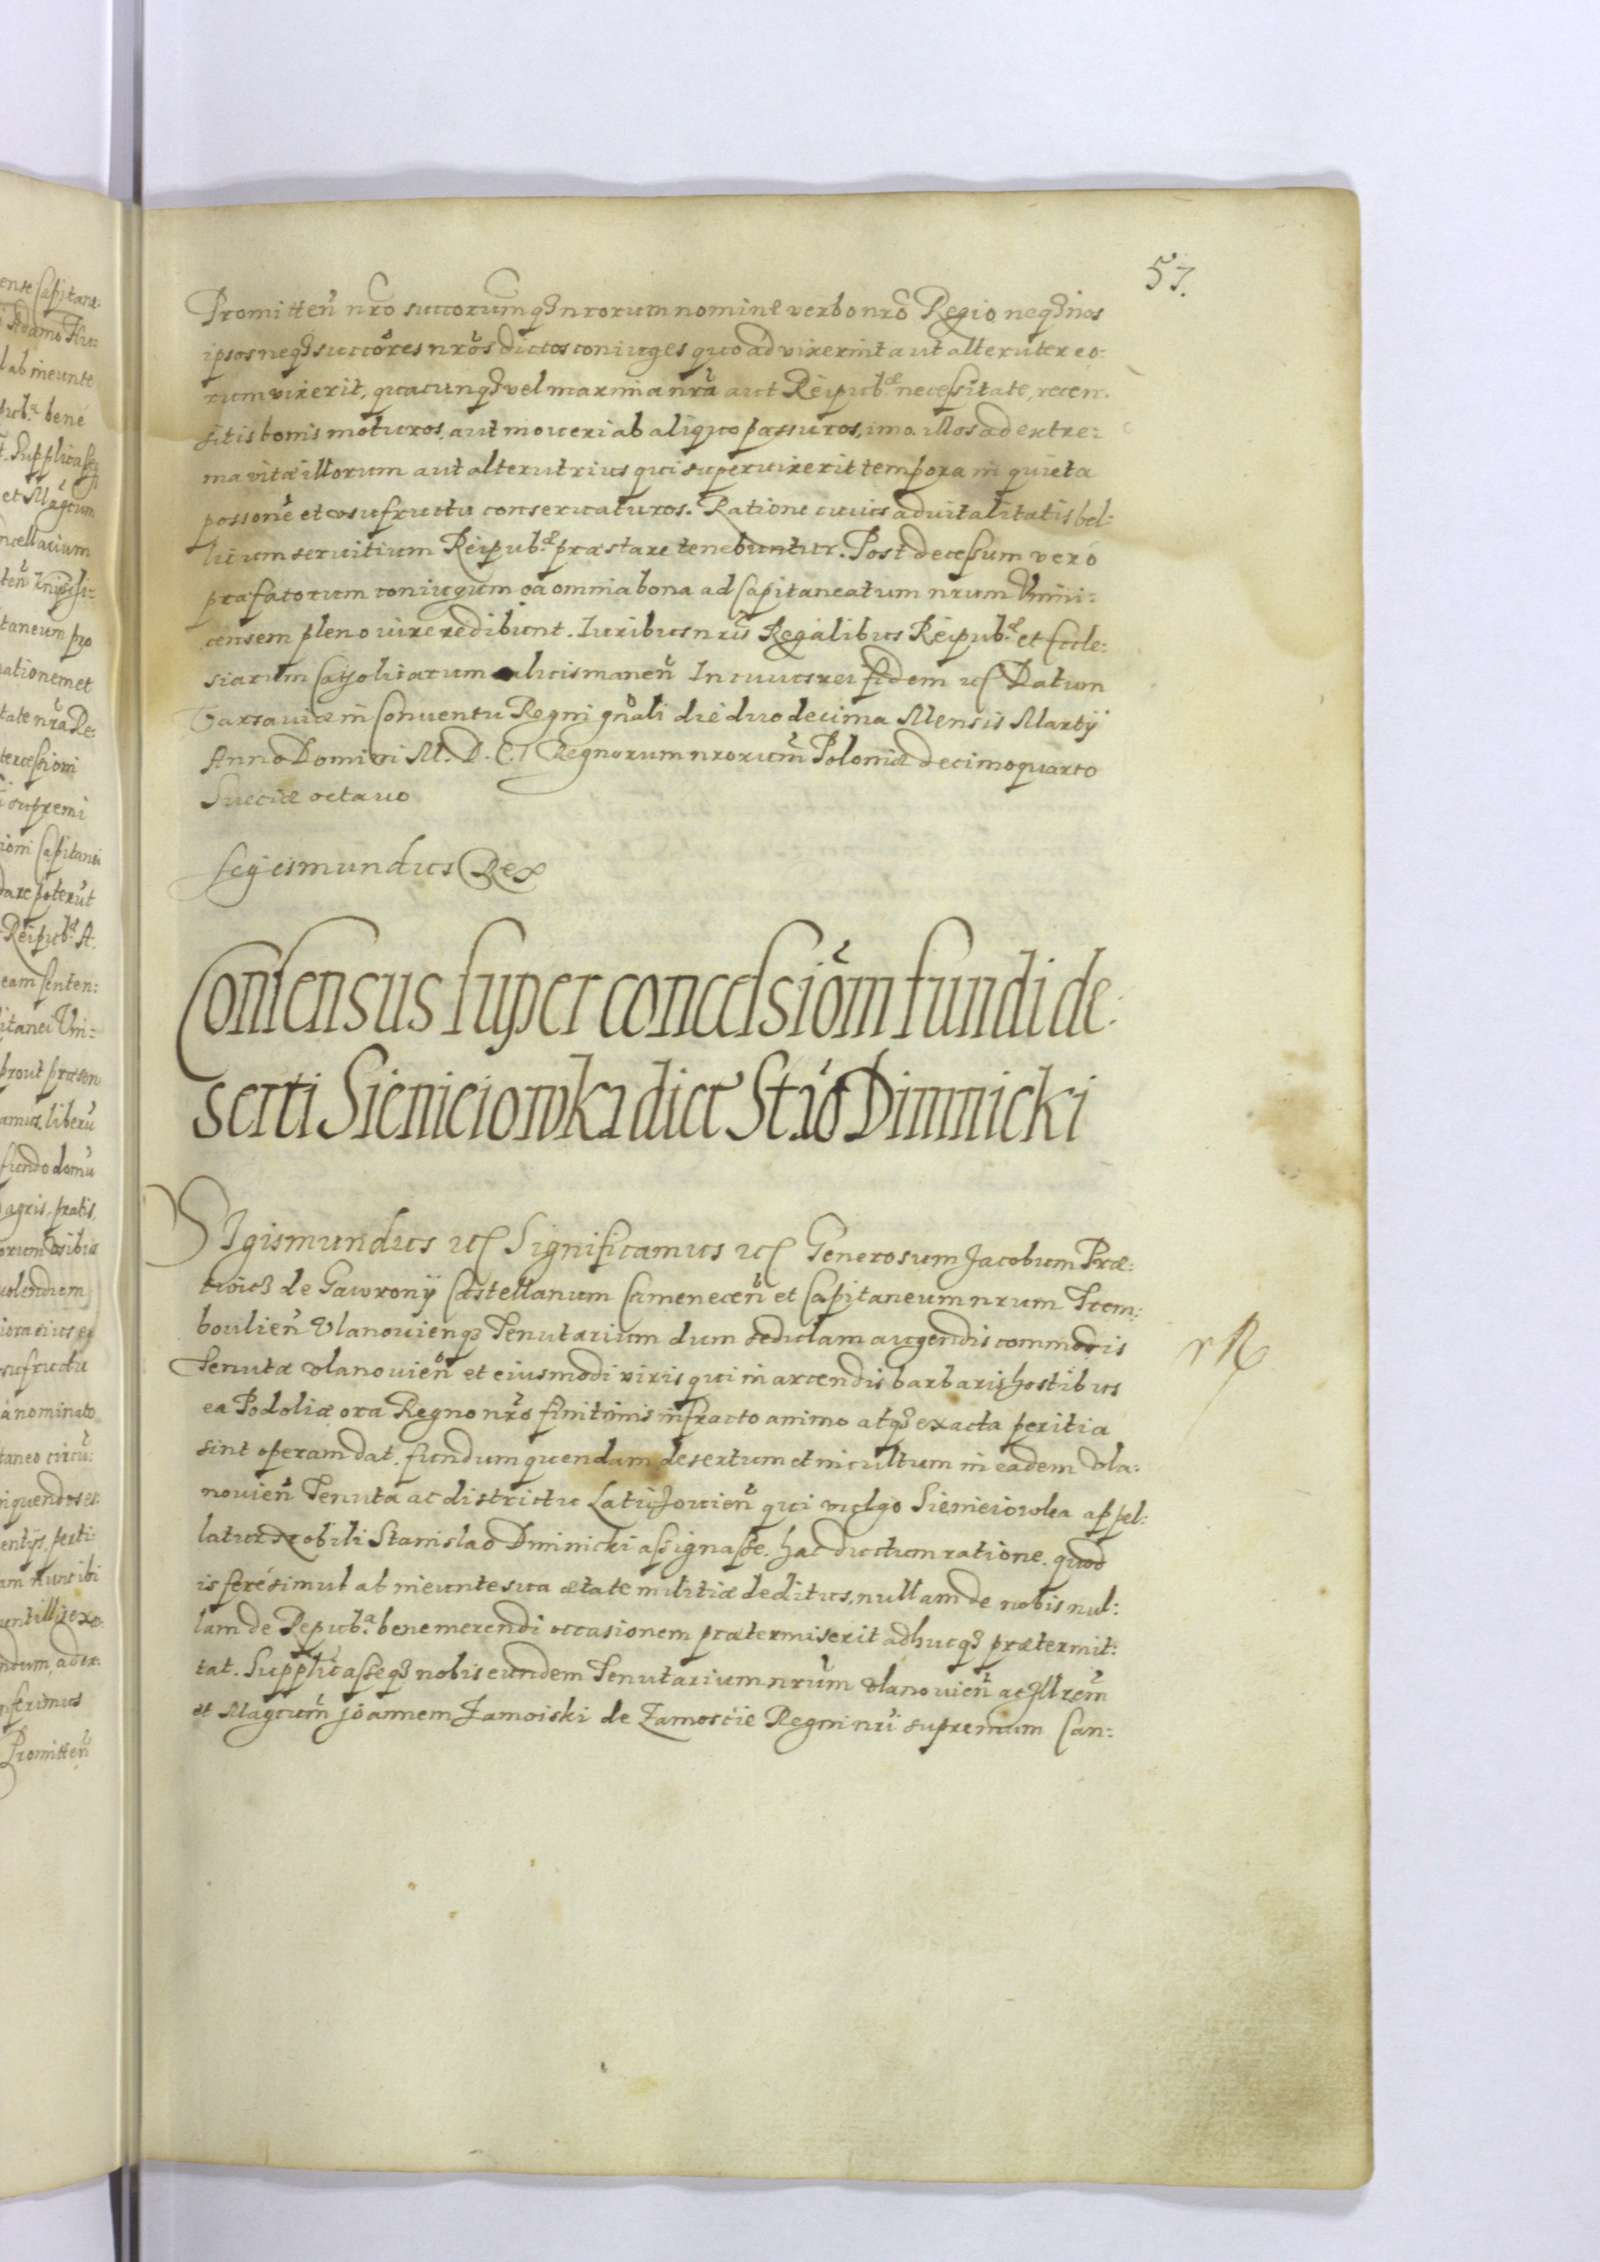 57.
Promitteñ nr̃o succorum q3 nrorum nomine verbo nrõ Regio neq3 nos
ipsos neq3 succõres nrõs dictos coniuges quoad vixerint aut alteruter eo-
rum vixerit, quacunq3 vel maxima nrã aut Reipub.æ necessitate, recen-
sitis bonis moturos, aut moveri ab aliquo passuros, imo illos ad extre:
ma vitæ illorum aut alterutrius qui supervixerit tempora in quieta
possonẽ et usufructu conservaturos. Ratione cuius advitalitatis bel:
licum servitium Reipub.æ præstare tenebuntur. Post decessum verò
præfatorum coniugum ea omnia bona ad Capitaneatum nrum Vinni:
censem pleno iure redibunt. Iuribus nris̃ Regalibus Reipub.æ et Eccle:
siarum Catholicarum salvis maneñ In cuius rei fidem etc Datum
Varsaviæ in Conventu Regni gnãli die duodecima Mensis Martij
Anno Domini M. D. C. I Regnorum nrorum̃ Poloniæ decimoquarto
Sueciæ octavo
Sigismundus Rex
Consensus super concessiõm fundi de:
serti Sienieiowka dict Stão Dimnicki
Sigismundus etc Significamus etc Generosum Jacobum Præ:
twicz de Gawrony Castellanum Cameneceñ et Capitaneum nrum Trem:
bowlieñ Ulanovienq3 Tenutarium dum sedulam augendis commodis
Tenutæ Ulanovieñ et eiusmodi viris qui in arcendis barbaris hostibus
ea Podoliæ ora Regno nrõ finitimis infracto animo atq3 exacta peritia
sint operam dat, fundum quendam desertum et incultum in eadem Ula:
novieñ Tenuta ac districtu Laticzovieñ qui vulgo Sienieiowka appel:
latur Nobili Stanislao Dminicki assignasse, hac ductum ratione, quod
is ferè simul ab ineunte sua ætate militiæ deditus, nullam de nobis nul:
lam de Repub.a benemerendi occasionem prætermiserit adhucq3 prætermit:
tat. Supplicasseq3 nobis eundem Tenutarium nrum̃ Ulanovieñ ac Illrem̃
et Magcum̃ Joannem Zamoiski de Zamoscie Regni nrĩ supremum Can: